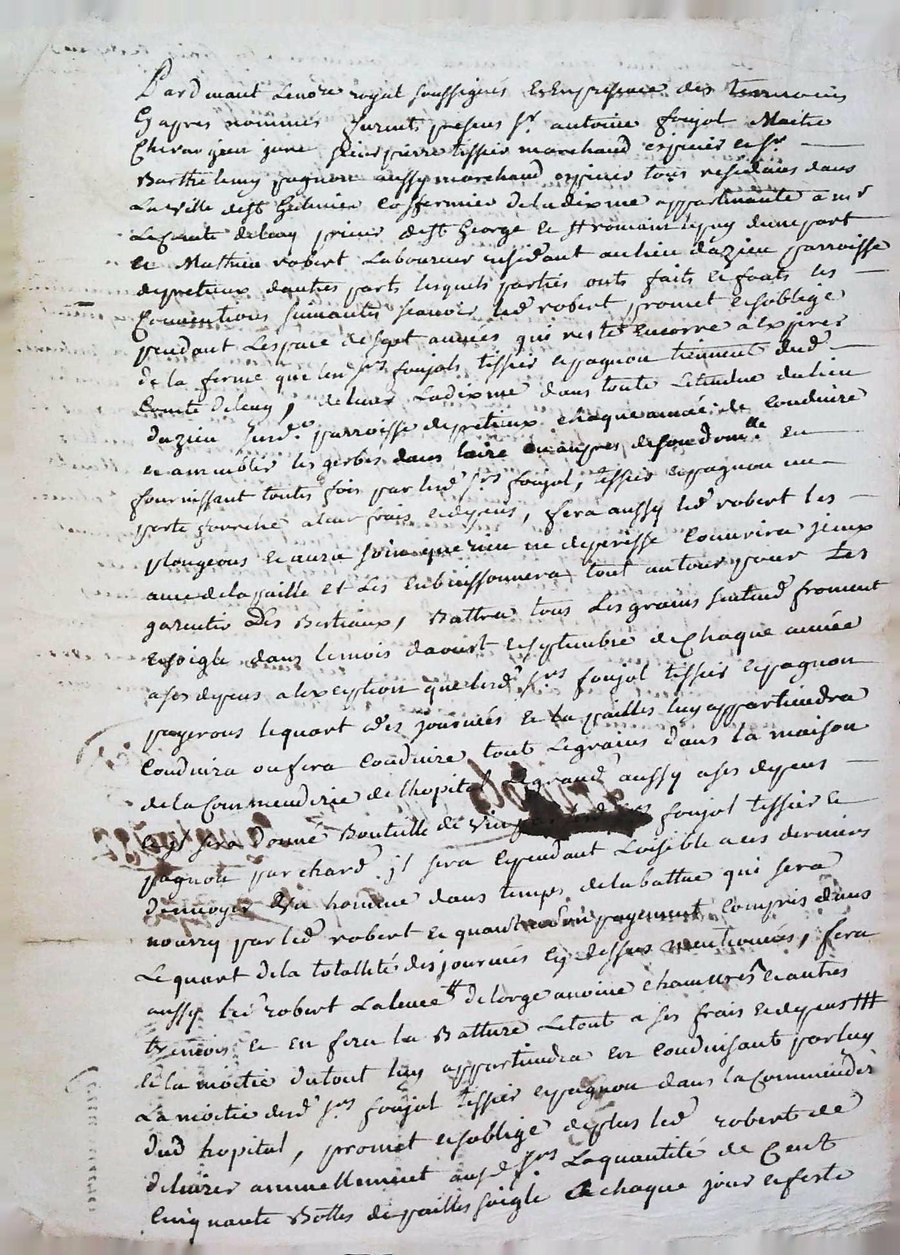 Pardevant Le notre royal soussignés et En presence des temoins
Cy apres nommés furent presens sr. antoine foujol Maitre
Chirurgien juré sieur pierre tissier marchand epicier et sr.
Barthelemy pagnon aussy marchand epicier tous residans dans
La ville de st Galmier cofermier de la dixme appartenante a mr
Le Comte de prieur de st George et st romain Lepuy dune part
et Mathieu robert Laboureur residant au lieu d'azieu parroisse
de pretieux dautres parts lesquels parties onts faits et fonts les
Conventions suivantes scavoir led robert promet et soblige
pendant Lespace de sept années qui reste encorre a Expirer
de la ferme que les srs foujols tissier et pagnon tiennent dud
Comte de , de lever Ladixme dans toute Letendue du lieu
dazieu surd. parroisse de pretieux chaque année de Conduire
et assembler les gerbes dans laire ou aupres de son domlle en
fournissant toutes fois par lesd srs foujol, tissier et pagnon un
porte fourche a leur frais et depens, fera aussy led robert les
plongeons et aura soin que rien ne deperisse Couvrira jceux
avec de la paille et Les enbuissonnera tout autour pour Les
garentir Des Bestiaux, Battra tous Les grains froment
et soigle dans le mois daoust et septembre de Chaque année
a ses depens a lexception que lesd srs foujol tissier et pagnon
payerons le quart des journées et La pailles luy appartiendra
Conduira ou fera Conduire tout Le grains dans la maison
de la Commenderie de l'hopital Le grand aussy a ses depens
et jl sera donné Bouteille de vin foujol tissier et
pagnon par chard jl sera cependant Loisible a ces derniers
denvoyer Un homme dans temps de la battue qui sera
nourry par led robert et quant payement Compris dans
Le quart de la totallité des journées cy dessus mentionnés, fera
aussy led robert La levée de lorge avoine chanvres et autres
tremois et en fera la Batture Letout a ses frais et depens
et la moitié du tout luy appartiendra en Conduisant par luy
La moitié desd srs foujol tissier et pagnon dans la Commenderi
dud hopital, promet et soblige de plus led robert de
delivrer annuellement aus d srs La quantité de Cent
Cinquante Bottes de pailles soigle et chaque jour et feste